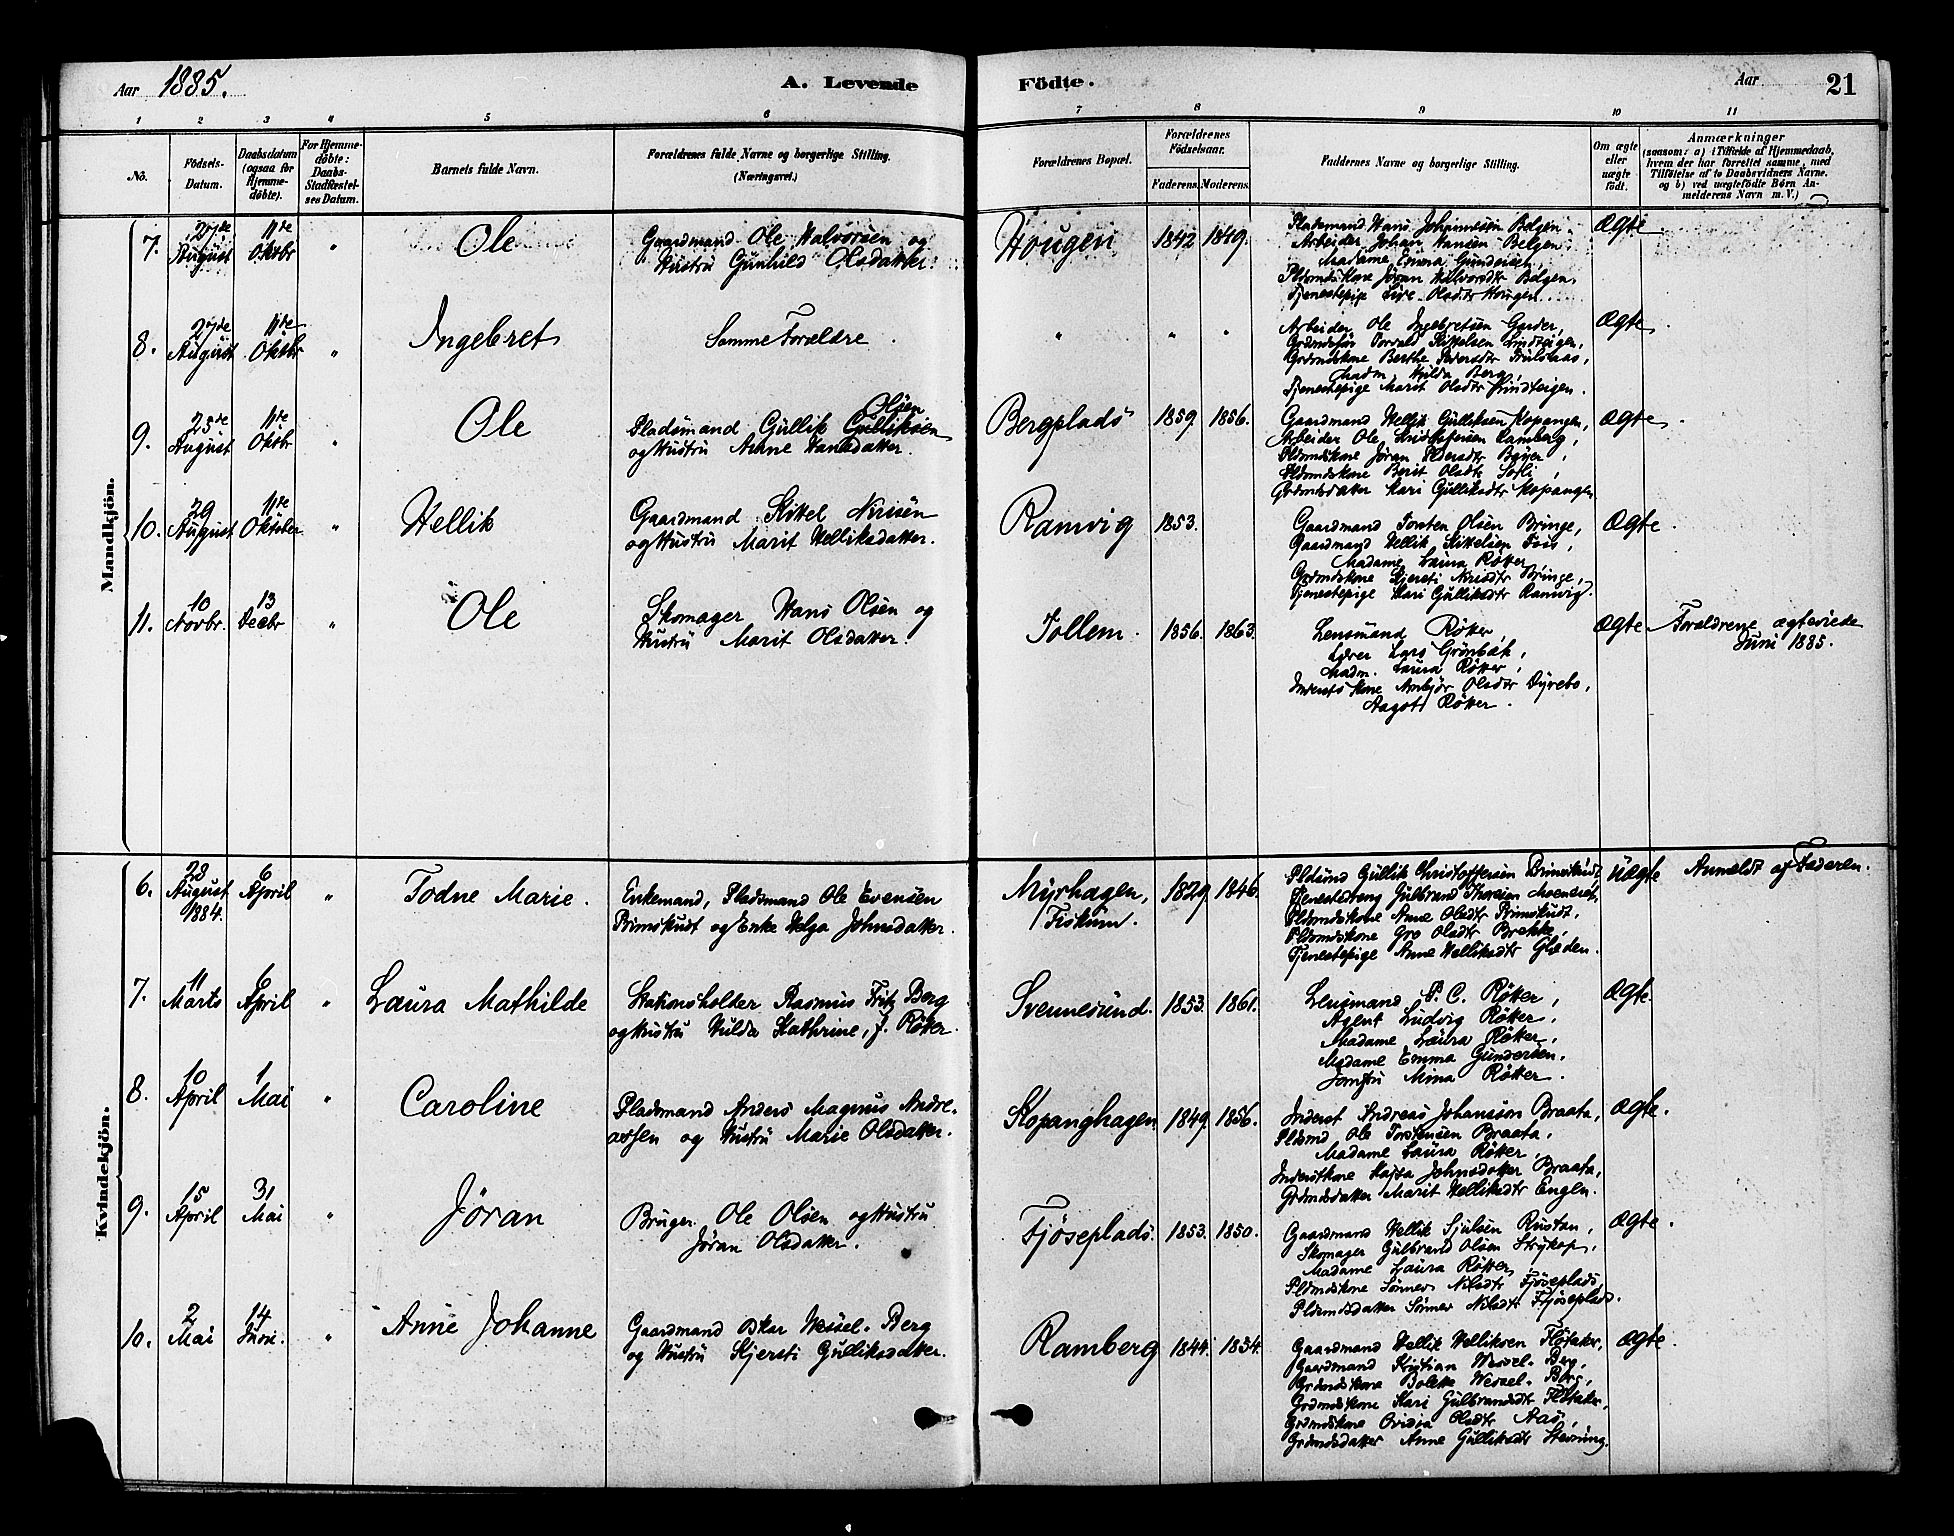 Aar 1885.
A. Levende
Födte.
Aar
21
1 2 3 4 5 6 7 8 9 10 11
No.
Födsels-
Datum.
Daabsdatum
(ogsaa for
Hjemme-
döbte).
For Hjemme-
döbte:
Daabs-
Stadfæstel-
ses Datum.
Barnets fulde Navn.
Forældrenes fulde Navne og borgerlige Stilling.
(Næringsvei.)
Forældrenes Bopæl.
Forældrenes
Födselsaar.
Faderens. Moderens.
Faddernes Navne og borgerlige Stilling.
Om ægte
eller
uægte
födt.
Anmærkninger
(saasom: a) i Tilfælde af Hjemmedaab,
hvem der har forrettet samme, med
Tilföielse af to Daabsvidners Navne.
og b) ved uægtefödte Börn An-
melderens Navn m. V.)
Mandkjön.
7.
27de
August
11te
Oktbr
"
Ole
Gaardmand Ole Halvorsen og
Hustru Gunhild Olsdatter.
Hougen
1842 1849.
Pladsmand Hans Johannesen Belgen.
Arbeider Johan Hansen Belgen.
Madame Emma Gundersen
Pldsmdskone Jøran Halvorsdtr Belgen,
Tjenestepige Live Olsdtr Hougen.
Ægte
8.
27de
August
11te
Oktbr
"
Ingebret
Samme Forældre
" " "
Arbeider Ole Ingebretsen Garder,
Grdmdskone Berthe Pedersdtr
Madm. Hilda Berg,
Tjenestepige Marit Olsdtr Lindteigen.
Ægte.
9.
25de
August
11te
Oktbr
"
Ole
Olsen
Pladsmand Gullik Gulliksen
og Hustru Anne Hansdatter.
Bergplads
1859 1856.
Gaardmand Hellik Gulliksen Kopangen,
Arbeider Ole Kristofersen Ramberg,
Pldsmdskone Jøran Pedersdtr
Pldsmdskone Berit Olsdtr
Grdmdsdatter Kari Gulliksdtr Kopangen
Ægte.
10.
29
August
11te
Oktober
"
Hellik
Gaardmand Kittel Nirisen
og Hustru Marit Helliksdatter.
Ramvig
1853.
Gaardmand Torsten Olsen Bringe,
Gaardmand Hellik Kittelsen
Madame Laura Røtter
Grdmdskone Kjersti Nirisdtr Bringe,
Tjenestepige Kari Gulliksdtr Ramvig.
Ægte.
11.
10
Novbr.
13
Decbr
"
Ole
Skomager Hans Olsen og
Hustru Marit Olsdatter.
Tollem.
1856. 1863.
Lensmand Røtter,
Lærer Lars Grönbæk,
Madm. Laura Røtter,
Inderstskone Anbjør Olsdtr Dyrebo,
Aagot Røtter.
Ægte.
Forældrene ægteviede
Juni 1885.
Kvindekjön.
6.
28
August
1884.
6
April
"
Todne Marie.
Enkemand, Pladsmand Ole Evensen
Primskudt og Enke Helga Johnsdatter.
Myrhagen,
Fiskum.
1829 1846.
Pldsmd Gullik Christoffersen Primskudt,
Tjenestedreng Gulbrand
Pldsmdskone Anne Olsdtr Primskudt,
Pldsmdskone Gro Olsdtr Brekke,
Tjenestepige Anne Helliksdtr Glæden.
Uægte
Anmeldt af Faderen.
7.
11
Marts
6
April
"
Laura Mathilde
Stationsholder Rasmus Fritz Berg
og Hustru Hulda Kathrine, f. Røtter.
Svennesund.
1853. 1861.
Lensmand P. C. Røtter,
Agent Ludvig Røtter,
Madame Laura Røtter,
Madame Emma Gundersen.
Jomfru Mina Røtter.
Ægte.
8.
10
April
1
Mai
"
Caroline
Pladsmand Anders Magnus Andre-
assen og Hustru Marie Olsdatter.
Kopanghagen
1849. 1856.
Inderst Andreas Johansson Braata,
Pldsmd Ole Torstensen Braata,
Madame Laura Røtter,
Inderstkone Kajsa Johnsdatter Braata,
Grdmdsdatter Marit Helliksdtr Englen.
Ægte.
9.
15
April
31
Mai
"
Jøran
Bruger Ole Olsen og Hustru
Jøran Olsdatter.
Fjøseplads.
1853. 1850.
Gaardmand Hellik Sjulsen Rustan,
Skomager Gulbrand Olsen
Madame Laura Røtter,
Pldsmdskone Sønnev Nilsdtr Fjøseplads,
Pldsmdsdatter Sønnev Nilsdtr Fjøseplads.
Ægte.
10.
2
Mai
14
Juni.
"
Anne Johanne
Gaardmand Oskar Wessel-Berg
og Hustru Kjersti Gulliksdatter.
Ramberg
1844. 1854.
Gaardmand Hellik Helliksen Fløtaker,
Gaardmand Kristian Wessel-Berg,
Grdmdskone Bolette Wessel-Berg,
Grdmdskone Kari Gulbrandsdtr Fløtaker,
Grdmdskone Ovidia Olsdtr Aas,
Grdmdsdatter Anne Gulliksdtr
Ægte.